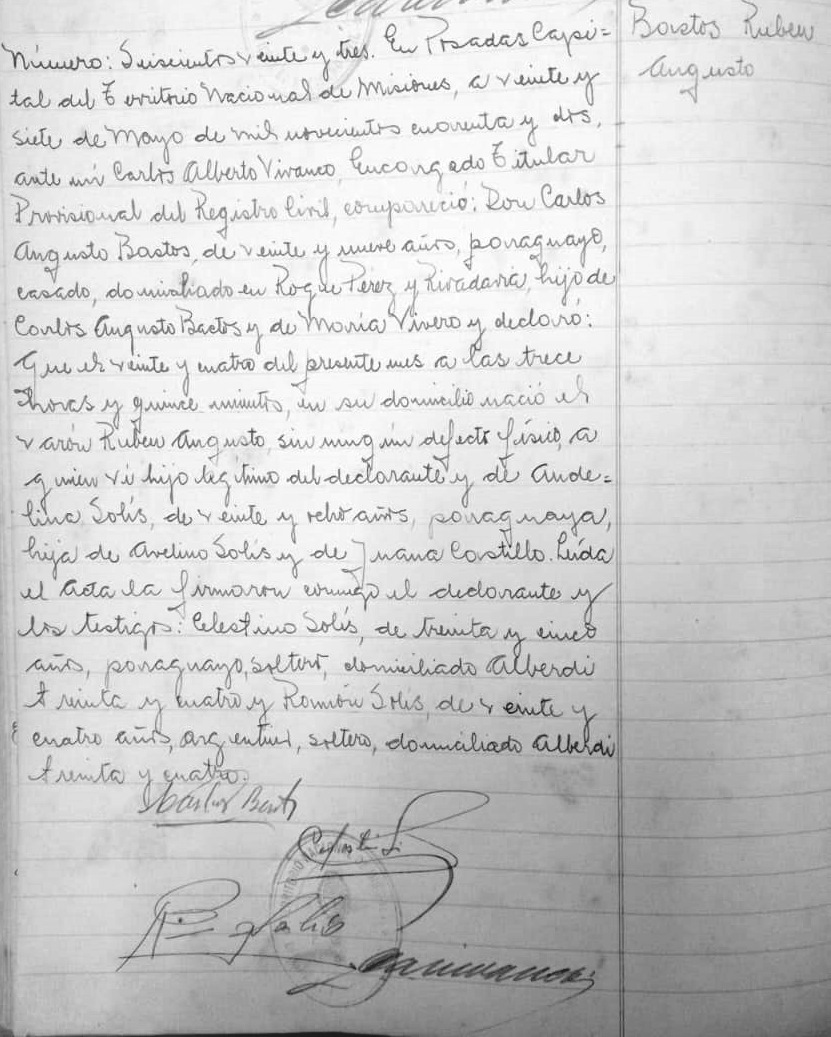 Número: Seiscientos veinte y tres. En Posadas Capi=
tal del Territorio Nacional de Misiones, a veinte y
siete de Mayo de mil novecientos cuarenta y dos,
ante mi Carlos Alberto Vivanco, Encargado Titular
Provisional del Registro Civil, compareció: Don Carlos
Augusto Bastos, de veinte y nueve años, paraguayo,
casado, domiciliado en Roque Perez y Rivadavia, hijo de
Carlos Augusto Bastos y de María Vivero y declaró:
Que el veinte y cuatro del presente mes a las trece
horas y quince minutos, en su domicilio nació el
varón Ruben Augusto, sin ningún defecto físico, a
quien vi hijo legítimo del declarante y de Ande=
lina Solís, de veinte y ocho años, paraguaya,
hija de Avelino Solís y de Juana Castillo. Leída
el acta la firmaron conmigo el declarante y
los testigos: Celestino Solís, de treinta y cinco
años, paraguayo, soltero, domiciliado Alberdi
treinta y cuatro y Ramón Solís, de veinte y
cuatro años, argentino, soltero, domiciliado Alberdi
treinta y cuatro.
Bastos Ruben
Augusto